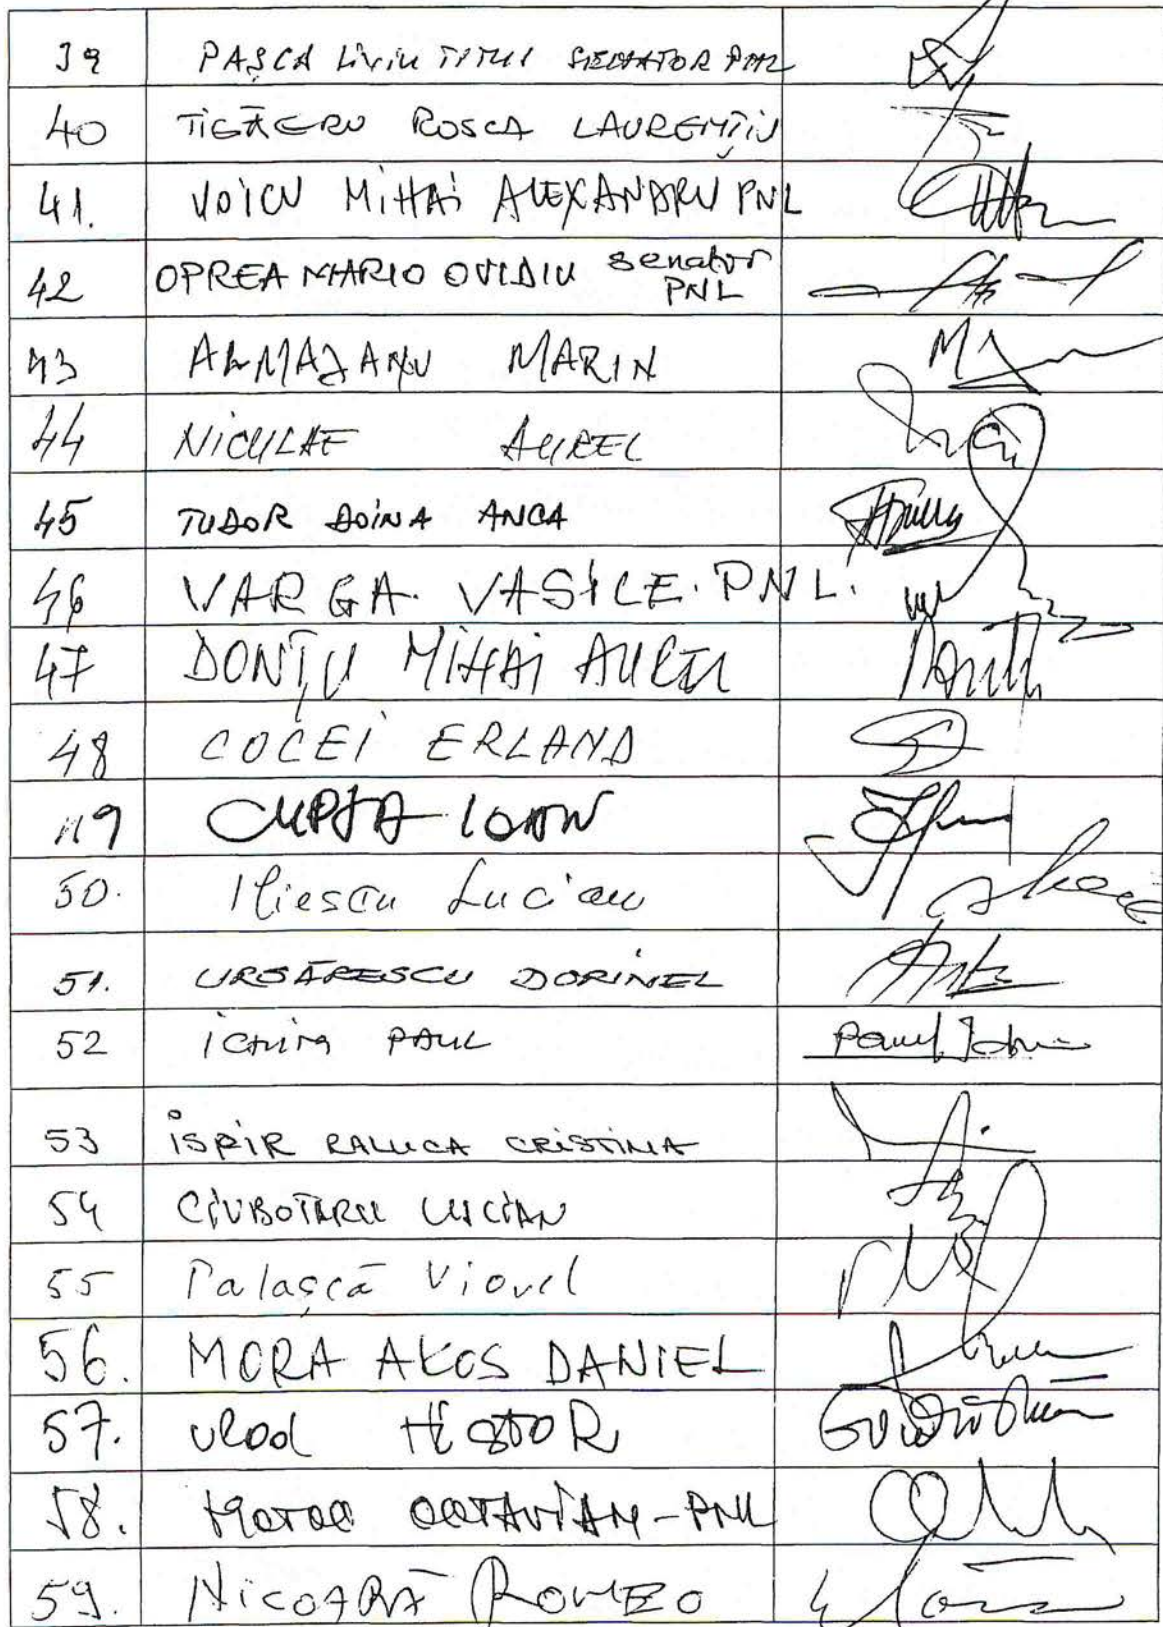 39 PAȘCA Liviu TITUS SENATOR PNL
40 TIGĂERU ROSCA LAURENȚIU
41. VOICU MIHAI ALEXANDRU PNL
42 OPREA MARIO OVIDIU senator
PNL
43 ALMAJANU MARIN
44 NICULAE AUREL
45 TUDOR DOINA ANCA
46 VARGA. VASILE. PNL.
47 DONȚU MIHAI AUREL
48 COCEI ERLAND
49 CUPȘA IOAN
50. Iliescu Lucian
51. URSĂRESCU DORINEL
52 ICHIM PAUL
53 ISPIR RALUCA CRISTINA
54 CIUBOTARU LUCIAN
55 Palașcă Viorel
56. MORA AKOS DANIEL
57. VLOD
58. MOTOC OCTAVIAN-PNL
59. NICOARĂ ROMEO